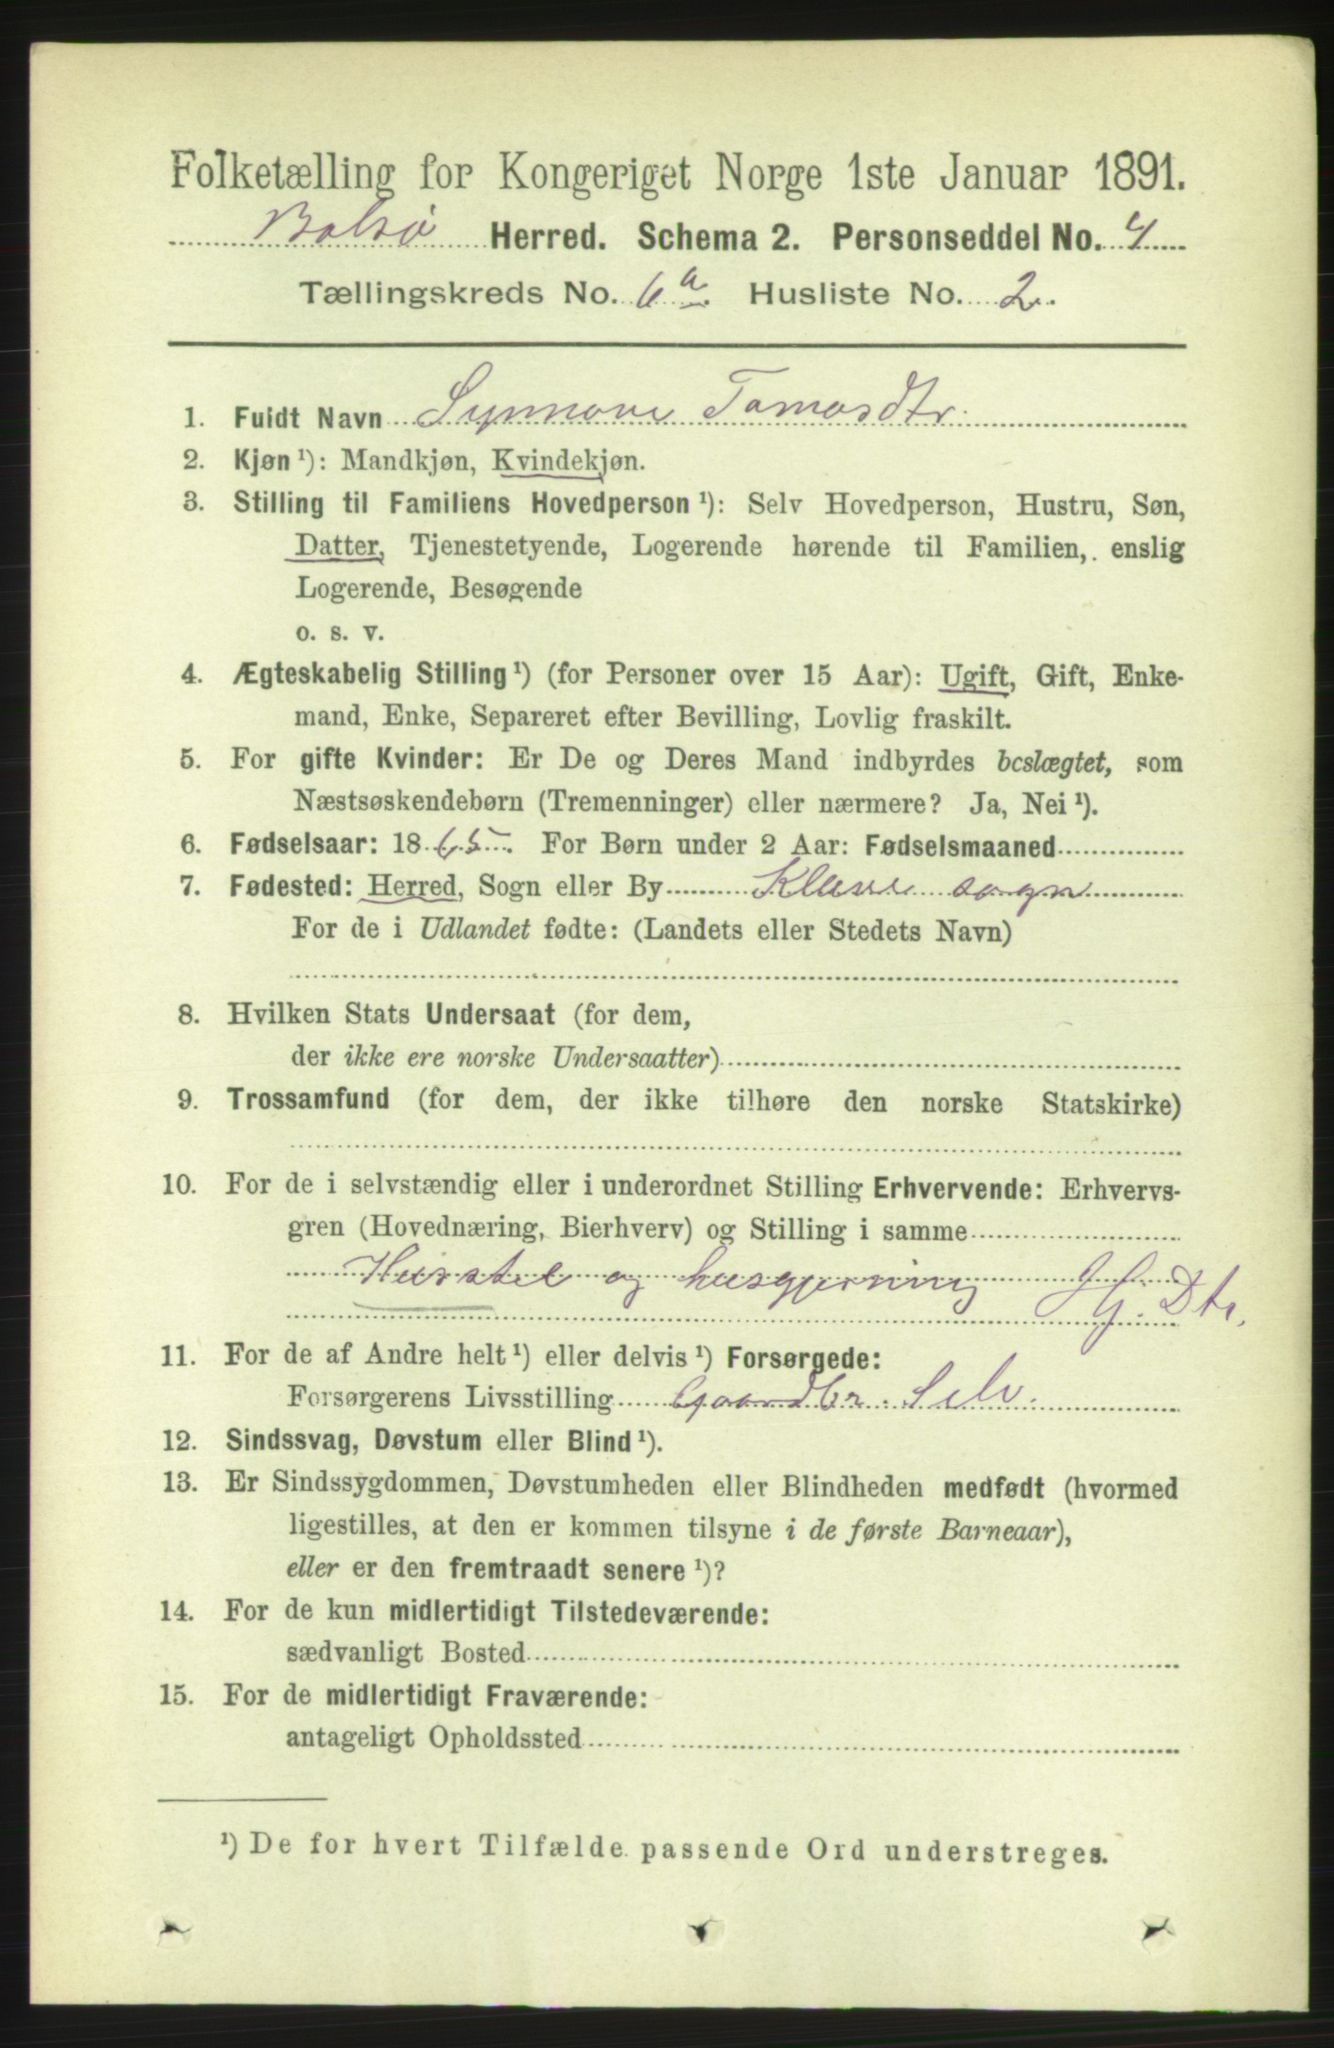 Folketælling for Kongeriget Norge 1ste Januar 1891.
Bolsø Herred. Schema 2. Personseddel No. 4
Tællingskreds No. 6a. Husliste No. 2.
1. Fuldt Navn Synnove Tomasdtr.
2. Kjøn ¹): Mandkjøn, Kvindekjøn.
3. Stilling til Familiens Hovedperson ¹): Selv Hovedperson, Hustru, Søn,
Datter, Tjenestetyende, Logerende hørende til Familien, enslig
Logerende, Besøgende
o. s. v.
4. Ægteskabelig Stilling ¹) (for Personer over 15 Aar): Ugift, Gift, Enke-
mand, Enke, Separeret efter Bevilling, Lovlig fraskilt.
5. For gifte Kvinder: Er De og Deres Mand indbyrdes beslægtet, som
Næstsøskendebørn (Tremenninger) eller nærmere? Ja, Nei ¹).
6. Fødselsaar: 1865. For Børn under 2 Aar: Fødselsmaaned
7. Fødested: Herred, Sogn eller By Kleve sogn
For de i Udlandet fødte: (Landets eller Stedets Navn)
8. Hvilken Stats Undersaat (for dem,
der ikke ere norske Undersaatter)
9. Trossamfund (for dem, der ikke tilhøre den norske Statskirke)
10. For de i selvstændig eller i underordnet Stilling Erhvervende: Erhvervs-
gren (Hovednæring, Bierhverv) og Stilling i samme
Husstel og husgjerning Hj. Dtr.
11. For de af Andre helt ¹) eller delvis ¹) Forsørgede:
Forsørgerens Livsstilling Gaardbr. Selv.
12. Sindssvag, Døvstum eller Blind ¹).
13. Er Sindssygdommen, Døvstumheden eller Blindheden medfødt (hvormed
ligestilles, at den er kommen tilsyne i de første Barneaar),
eller er den fremtraadt senere ¹)?
14. For de kun midlertidigt Tilstedeværende:
sædvanligt Bosted
15. For de midlertidigt Fraværende:
antageligt Opholdssted
¹) De for hvert Tilfælde passende Ord understreges.